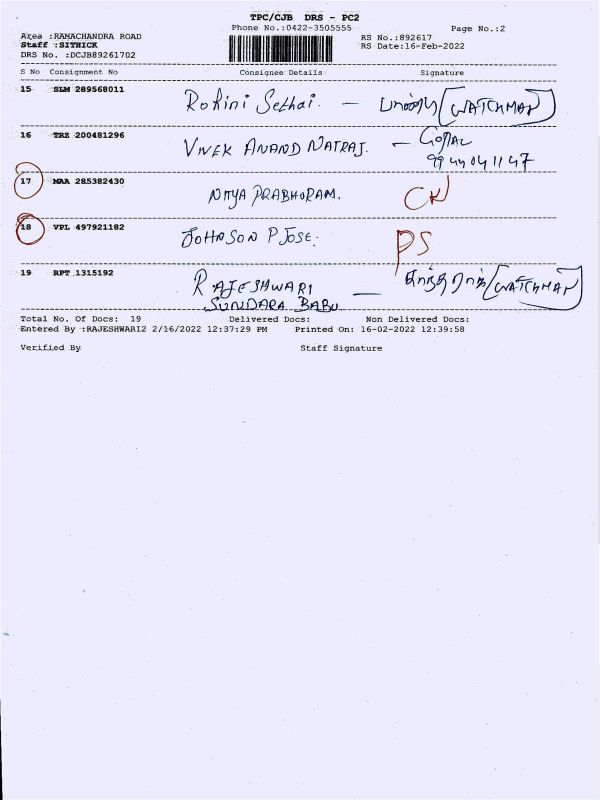 TPC/CJB DRS - PC2
Phone No.:0422-3505555 Page No.:2
Area :RAMACHANDRA ROAD RS No.:892617
Staff :SITHICK RS Date:16-Feb-2022
DRS No. :DCJB89261702
S No Consignment No Consignee Details Signature
15 SLM 289568011 Rohini Sethai. - (WATCHMAN)
16 TRZ 200481296 VIVEK ANAND NATRAJ. - GOPAL
99 44 04 11 47
17 MAA 285382430 NITYA PRABHORAM.
18 VPL 497921182 JOHNSON P JOSE. PS
19 RPT 1315192 RAJESHWARI - (WATCHMAN)
SUNDARA BABU
Total No. Of Docs: 19 Delivered Docs: Non Delivered Docs:
Entered By :RAJESHWARI2 2/16/2022 12:37:29 PM Printed On: 16-02-2022 12:39:58
Verified By Staff Signature